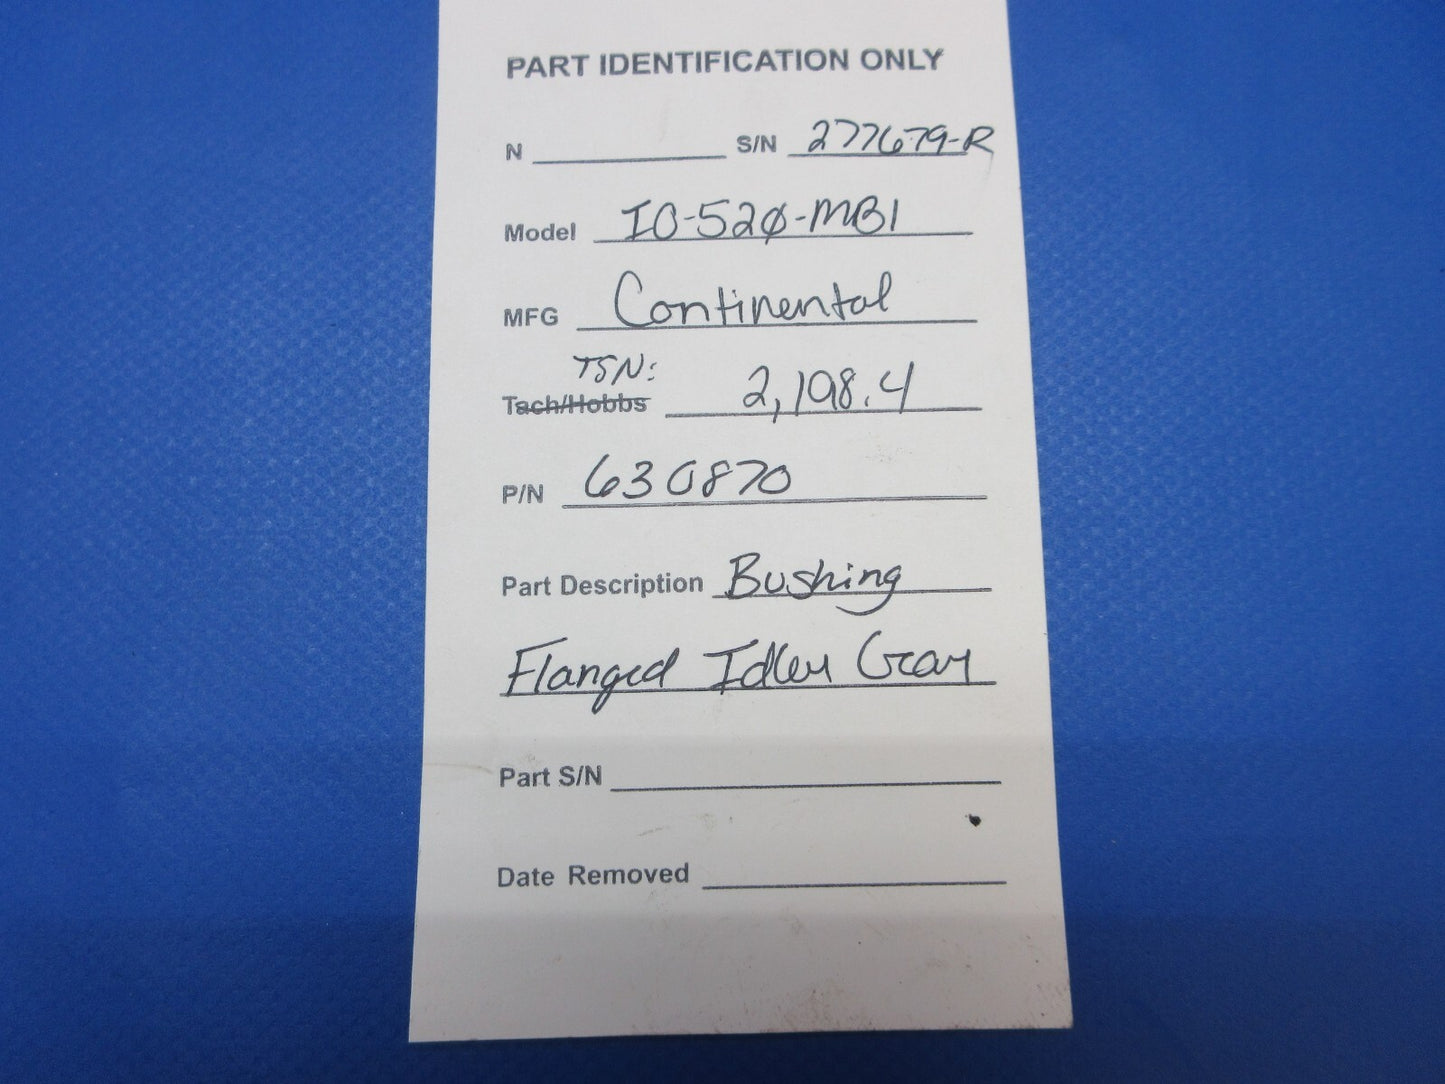 PART IDENTIFICATION ONLY
N S/N 277679-R
Model IO-520-MB1
MFG Continental
TSN:
Tach/Hobbs 2,198.4
P/N 630870
Part Description Bushing
Flanged Idler Gear
Part S/N
Date Removed